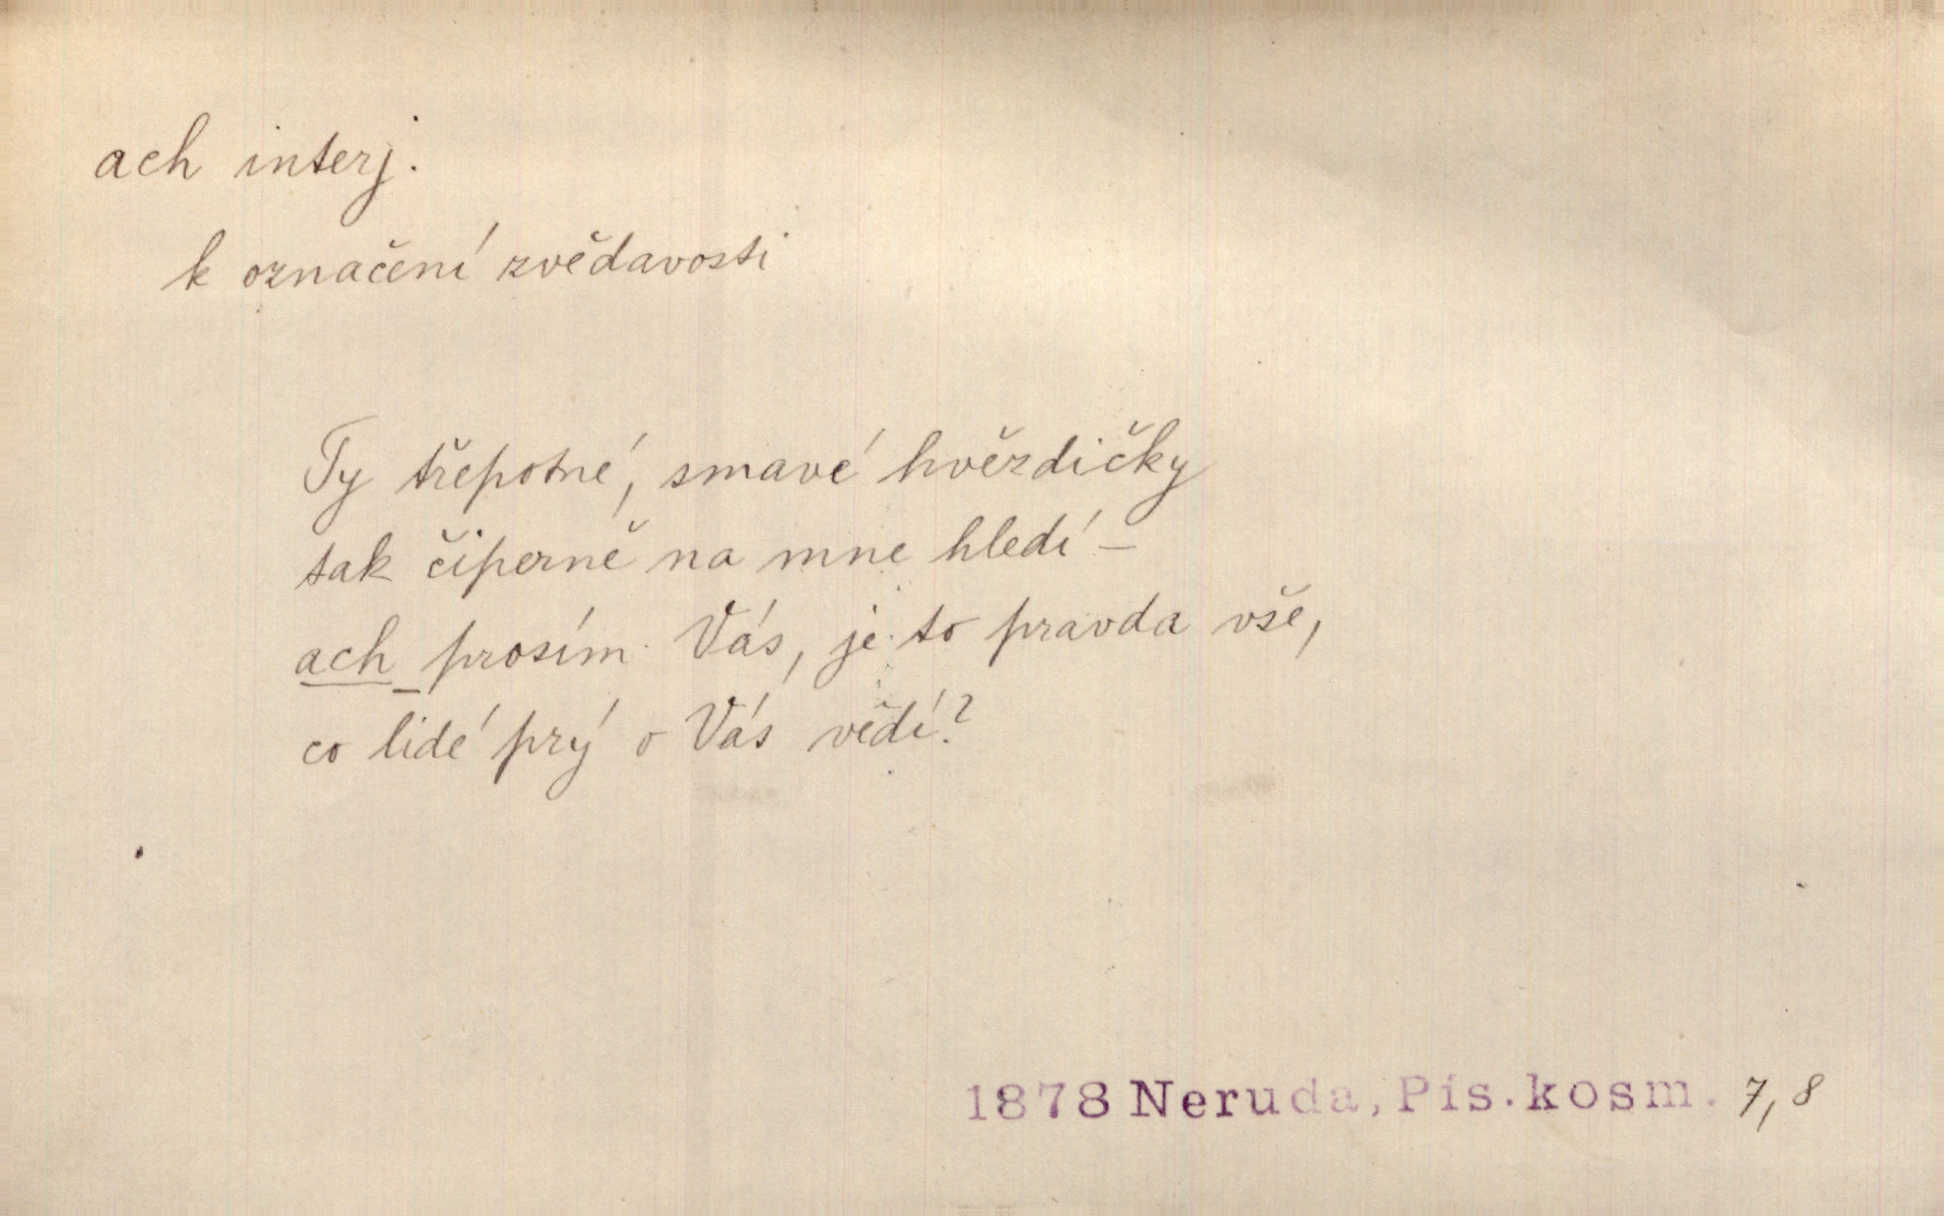 ach interj.
k označení zvědavosti
Ty třepotné, smavé hvězdičky
tak čiperně na mne hledí –
ach prosím Vás, je to pravda vše,
co lidé prý o Vás vědí?
1878 Neruda, Pís. kosm. 7, 8